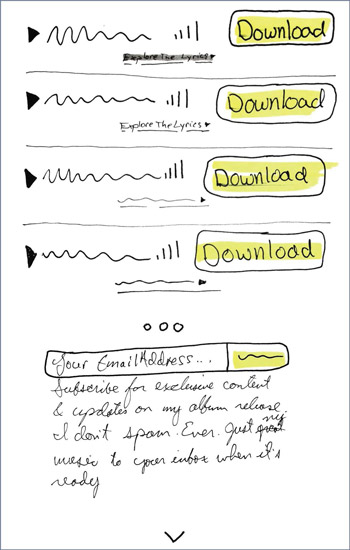 Download
Explore The Lyrics
Download
Explore The Lyrics
Download
Download
Your Email Address...
Subscribe for exclusive content
& updates on my album release
I don't spam. Ever. Just my
music to your inbox when it's
ready